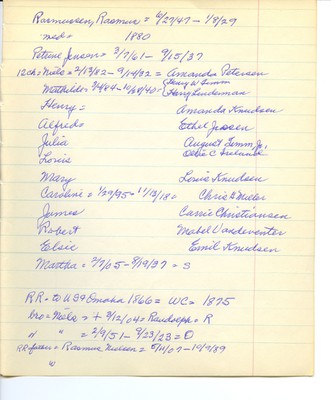 Rasmussen, Rasmus = 6/27/47 - 1/8/29
med = 1880
Petrine Jensen = 3/7/61 - 9/15/37
12ch = Niels = 2/13/82 - 9/14/82 = Amanda Petersen
Mathilda = 3/4/84 - 1/64/40 = {Henry W. Timm
Harry Lindeman
Henry = Amanda Knudsen
Alfred = Ethel Jessen
Julia August Timm, Jr.
Otto C Ireland
Louis
Mary Louis Knudsen
Caroline = 1/29/95 = 11/13/18 = Chris H Miller
James Carrie Christiansen
Robert Mabel Vandeventer
Elsie Emil Knudsen
Martha = 2/7/05 - 8/19/37 = S
RR = to USA Omaha 1866 = WC = 1875
bro = Niels = + 3/12/04 = Randolph = R
" " = 2/9/51 - 9/23/23 = D
RR father = Rasmus Nielsen = 5/11/07 - 10/9/89
"